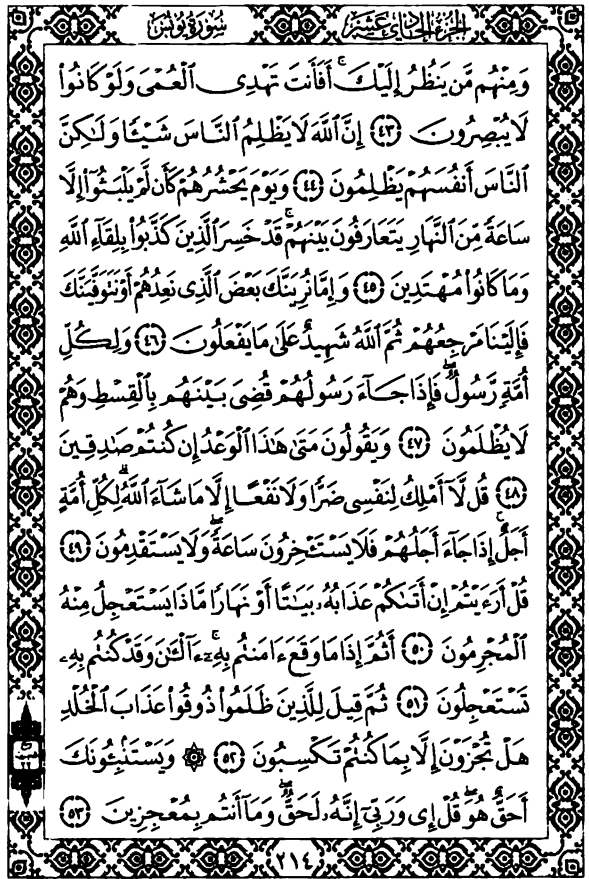 الجزء الحادي عشر
سورة يونس
وَمِنْهُم مَّن يَنظُرُ إِلَيْكَ ۚ أَفَأَنتَ تَهْدِى ٱلْعُمْىَ وَلَوْ كَانُوا۟
لَا يُبْصِرُونَ ﴿٤٣﴾ إِنَّ ٱللَّهَ لَا يَظْلِمُ ٱلنَّاسَ شَيْـًٔا وَلَـٰكِنَّ
ٱلنَّاسَ أَنفُسَهُمْ يَظْلِمُونَ ﴿٤٤﴾ وَيَوْمَ يَحْشُرُهُمْ كَأَن لَّمْ يَلْبَثُوٓا۟ إِلَّا
سَاعَةً مِّنَ ٱلنَّهَارِ يَتَعَارَفُونَ بَيْنَهُمْ ۚ قَدْ خَسِرَ ٱلَّذِينَ كَذَّبُوا۟ بِلِقَآءِ ٱللَّهِ
وَمَا كَانُوا۟ مُهْتَدِينَ ﴿٤٥﴾ وَإِمَّا نُرِيَنَّكَ بَعْضَ ٱلَّذِى نَعِدُهُمْ أَوْ نَتَوَفَّيَنَّكَ
فَإِلَيْنَا مَرْجِعُهُمْ ثُمَّ ٱللَّهُ شَهِيدٌ عَلَىٰ مَا يَفْعَلُونَ ﴿٤٦﴾ وَلِكُلِّ
أُمَّةٍ رَّسُولٌ ۖ فَإِذَا جَآءَ رَسُولُهُمْ قُضِىَ بَيْنَهُم بِٱلْقِسْطِ وَهُمْ
لَا يُظْلَمُونَ ﴿٤٧﴾ وَيَقُولُونَ مَتَىٰ هَـٰذَا ٱلْوَعْدُ إِن كُنتُمْ صَـٰدِقِينَ
﴿٤٨﴾ قُل لَّآ أَمْلِكُ لِنَفْسِى ضَرًّا وَلَا نَفْعًا إِلَّا مَا شَآءَ ٱللَّهُ ۗ لِكُلِّ أُمَّةٍ
أَجَلٌ ۚ إِذَا جَآءَ أَجَلُهُمْ فَلَا يَسْتَـْٔخِرُونَ سَاعَةً ۖ وَلَا يَسْتَقْدِمُونَ ﴿٤٩﴾
قُلْ أَرَءَيْتُمْ إِنْ أَتَىٰكُمْ عَذَابُهُۥ بَيَـٰتًا أَوْ نَهَارًا مَّاذَا يَسْتَعْجِلُ مِنْهُ
ٱلْمُجْرِمُونَ ﴿٥٠﴾ أَثُمَّ إِذَا مَا وَقَعَ ءَامَنتُم بِهِۦٓ ۚ ءَآلْـَٔـٰنَ وَقَدْ كُنتُم بِهِۦ
تَسْتَعْجِلُونَ ﴿٥١﴾ ثُمَّ قِيلَ لِلَّذِينَ ظَلَمُوا۟ ذُوقُوا۟ عَذَابَ ٱلْخُلْدِ
هَلْ تُجْزَوْنَ إِلَّا بِمَا كُنتُمْ تَكْسِبُونَ ﴿٥٢﴾ ۞ وَيَسْتَنۢبِـُٔونَكَ
أَحَقٌّ هُوَ ۖ قُلْ إِى وَرَبِّىٓ إِنَّهُۥ لَحَقٌّ ۖ وَمَآ أَنتُم بِمُعْجِزِينَ ﴿٥٣﴾
٢١٤